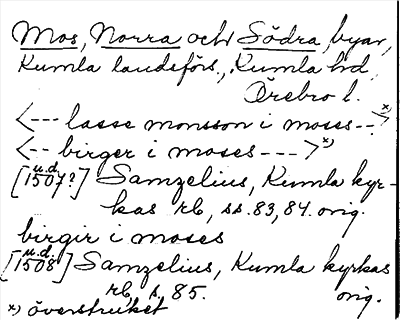 Mos, Norra och Södra, byar,
Kumla landsförs., Kumla hd,
Örebro l.
<--- lasse monsson i moses --->x)
<-- birger i moses --->x)
[u.d. 1507?] Samzelius, Kumla kyr-
kas rb, ss. 83, 84. orig.
birgir i moses
[u.d. 1508] Samzelius, Kumla kyrkas
rb, s. 85. orig.
x) överstruket